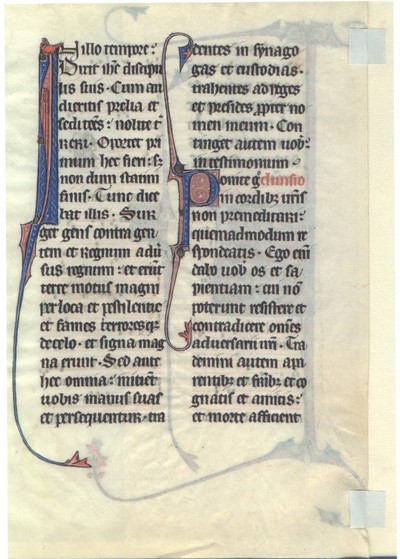 In illo tempore:
Dixit ihc discipu
lis suis. Cum au
dieritis prelia et
seditões: nolite t
reri. Oportet pri
mum hec fieri: sꝫ
non dum statim
finis. Tunc dice
bat illis. Sur
get gens contra gen
tem et regnum adũ
sus regnum: et erũt
terre motus magni
per loca et pestilentie
et fames terroresqꝫ
de celo. et signa mag
na erunt. Sed ante
hec omnia: mitiẽt
uobis manus suas
et persequentur. tra
dentes in synago
gas et custodias.
trahentes ad reges
et presides ꝓpter no
men meum. Con
tinget autem uob̃
in testimonium.
Ponite g̃ diuisio
in cordibꝫ ur̃is
non premeditari:
quemadmodum re
spondeatis. Ego eni
dabo uob̃ os et sa
pientiam: cui nõ
poterunt resistere et
contradicere om̃es
aduersarii ur̃i. Tra
demini autem apa
rentibꝫ et fr̃ibꝫ et co
gnatis et amicis:
et morte afficient